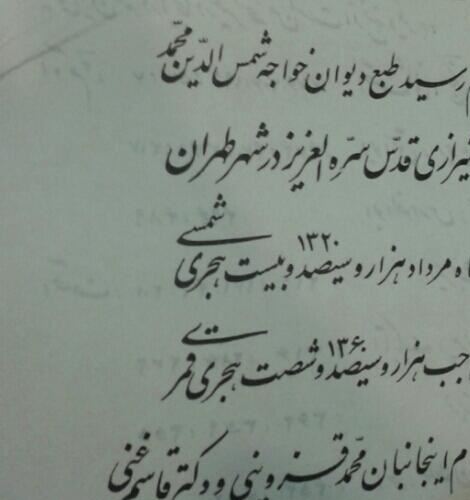 رسید طبع دیوان خواجه شمس الدّین محمّد
شیرازی قدّس سرّه العزیز در شهر طهران
ماه مرداد هزار و سیصد و بیست ۱۳۲۰ هجری شمسی
رجب هزار و سیصد و شصت ۱۳۶۰ هجری قمری
اینجانبان محمّد قزوینی و دکتر قاسم غنی